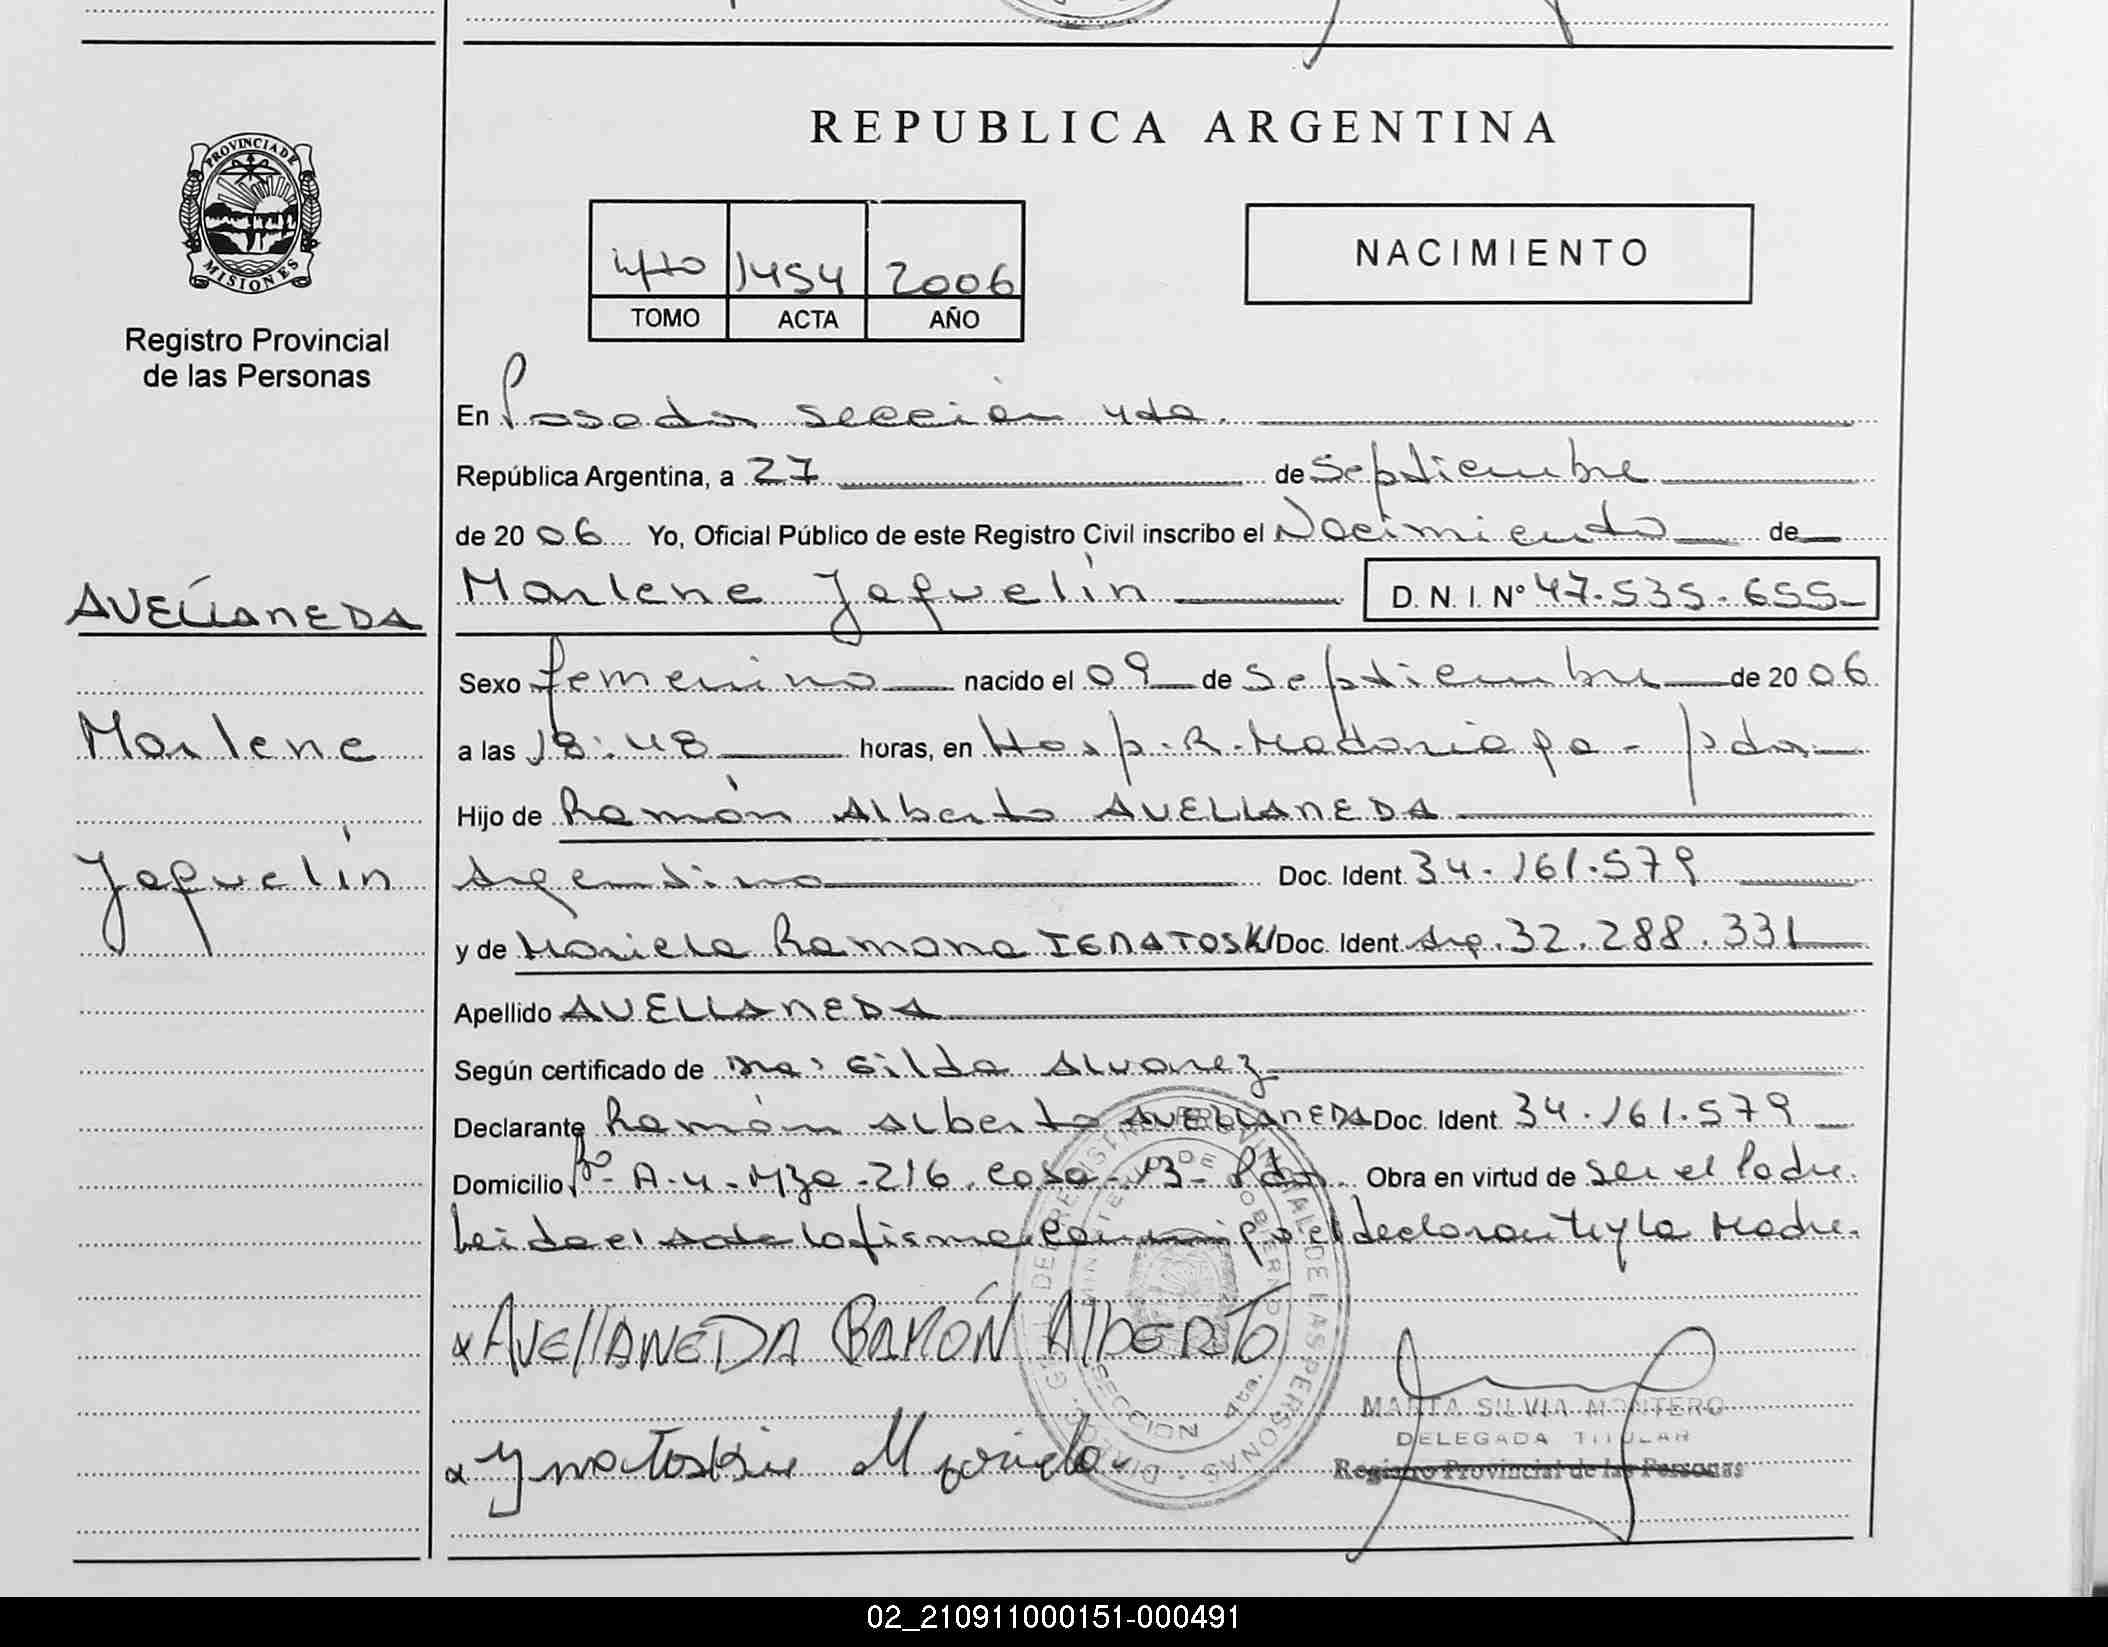 REPUBLICA ARGENTINA
PROVINCIA DE
MISIONES
Registro Provincial
de las Personas
4to 1454 2006
TOMO ACTA AÑO
NACIMIENTO
En Posadas sección 4ta.
República Argentina, a 27 de Septiembre
de 2006 Yo, Oficial Público de este Registro Civil inscribo el Nacimiento de
AVELLANEDA
Marlene Jaquelín D. N. I. Nº 47.535.655
Sexo femenino nacido el 09 de Septiembre de 2006
Marlene
a las 18:48 horas, en Hosp. R. Madariaga - Pdas
Hijo de Ramón Alberto AVELLANEDA
Jaquelín
Argentino Doc. Ident. 34.161.579
y de Mariela Ramona IGNATOSKI Doc. Ident. Arg. 32.288.331
Apellido AVELLANEDA
Según certificado de Gilda Alvarez
Declarante Ramón Alberto AVELLANEDA Doc. Ident. 34.161.579
Domicilio Bº- A-4-Mza-216. Casa-13- Pdas. Obra en virtud de ser el Padre.
Leida el acta la firma conmigo el declarante y la Madre.
AVEllANEDA RAMÓN AlbERTO
Mariela
SECCION 4ta.
MARTA SILVIA MONTERO
DELEGADA TITULAR
Registro Provincial de las Personas
02_210911000151-000491